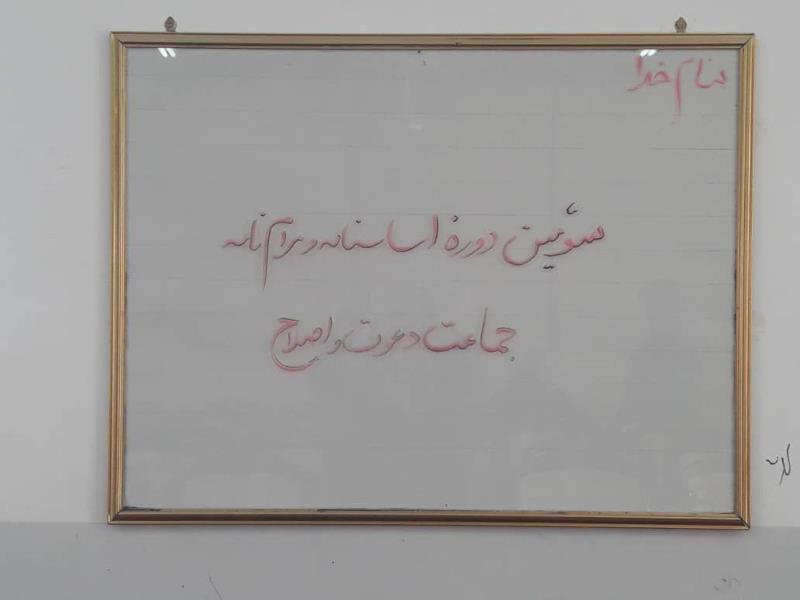 بنام خدا
سوّمین دورهٔ اساسنامه و مرام نامه
جماعت دعوت و اصلاح